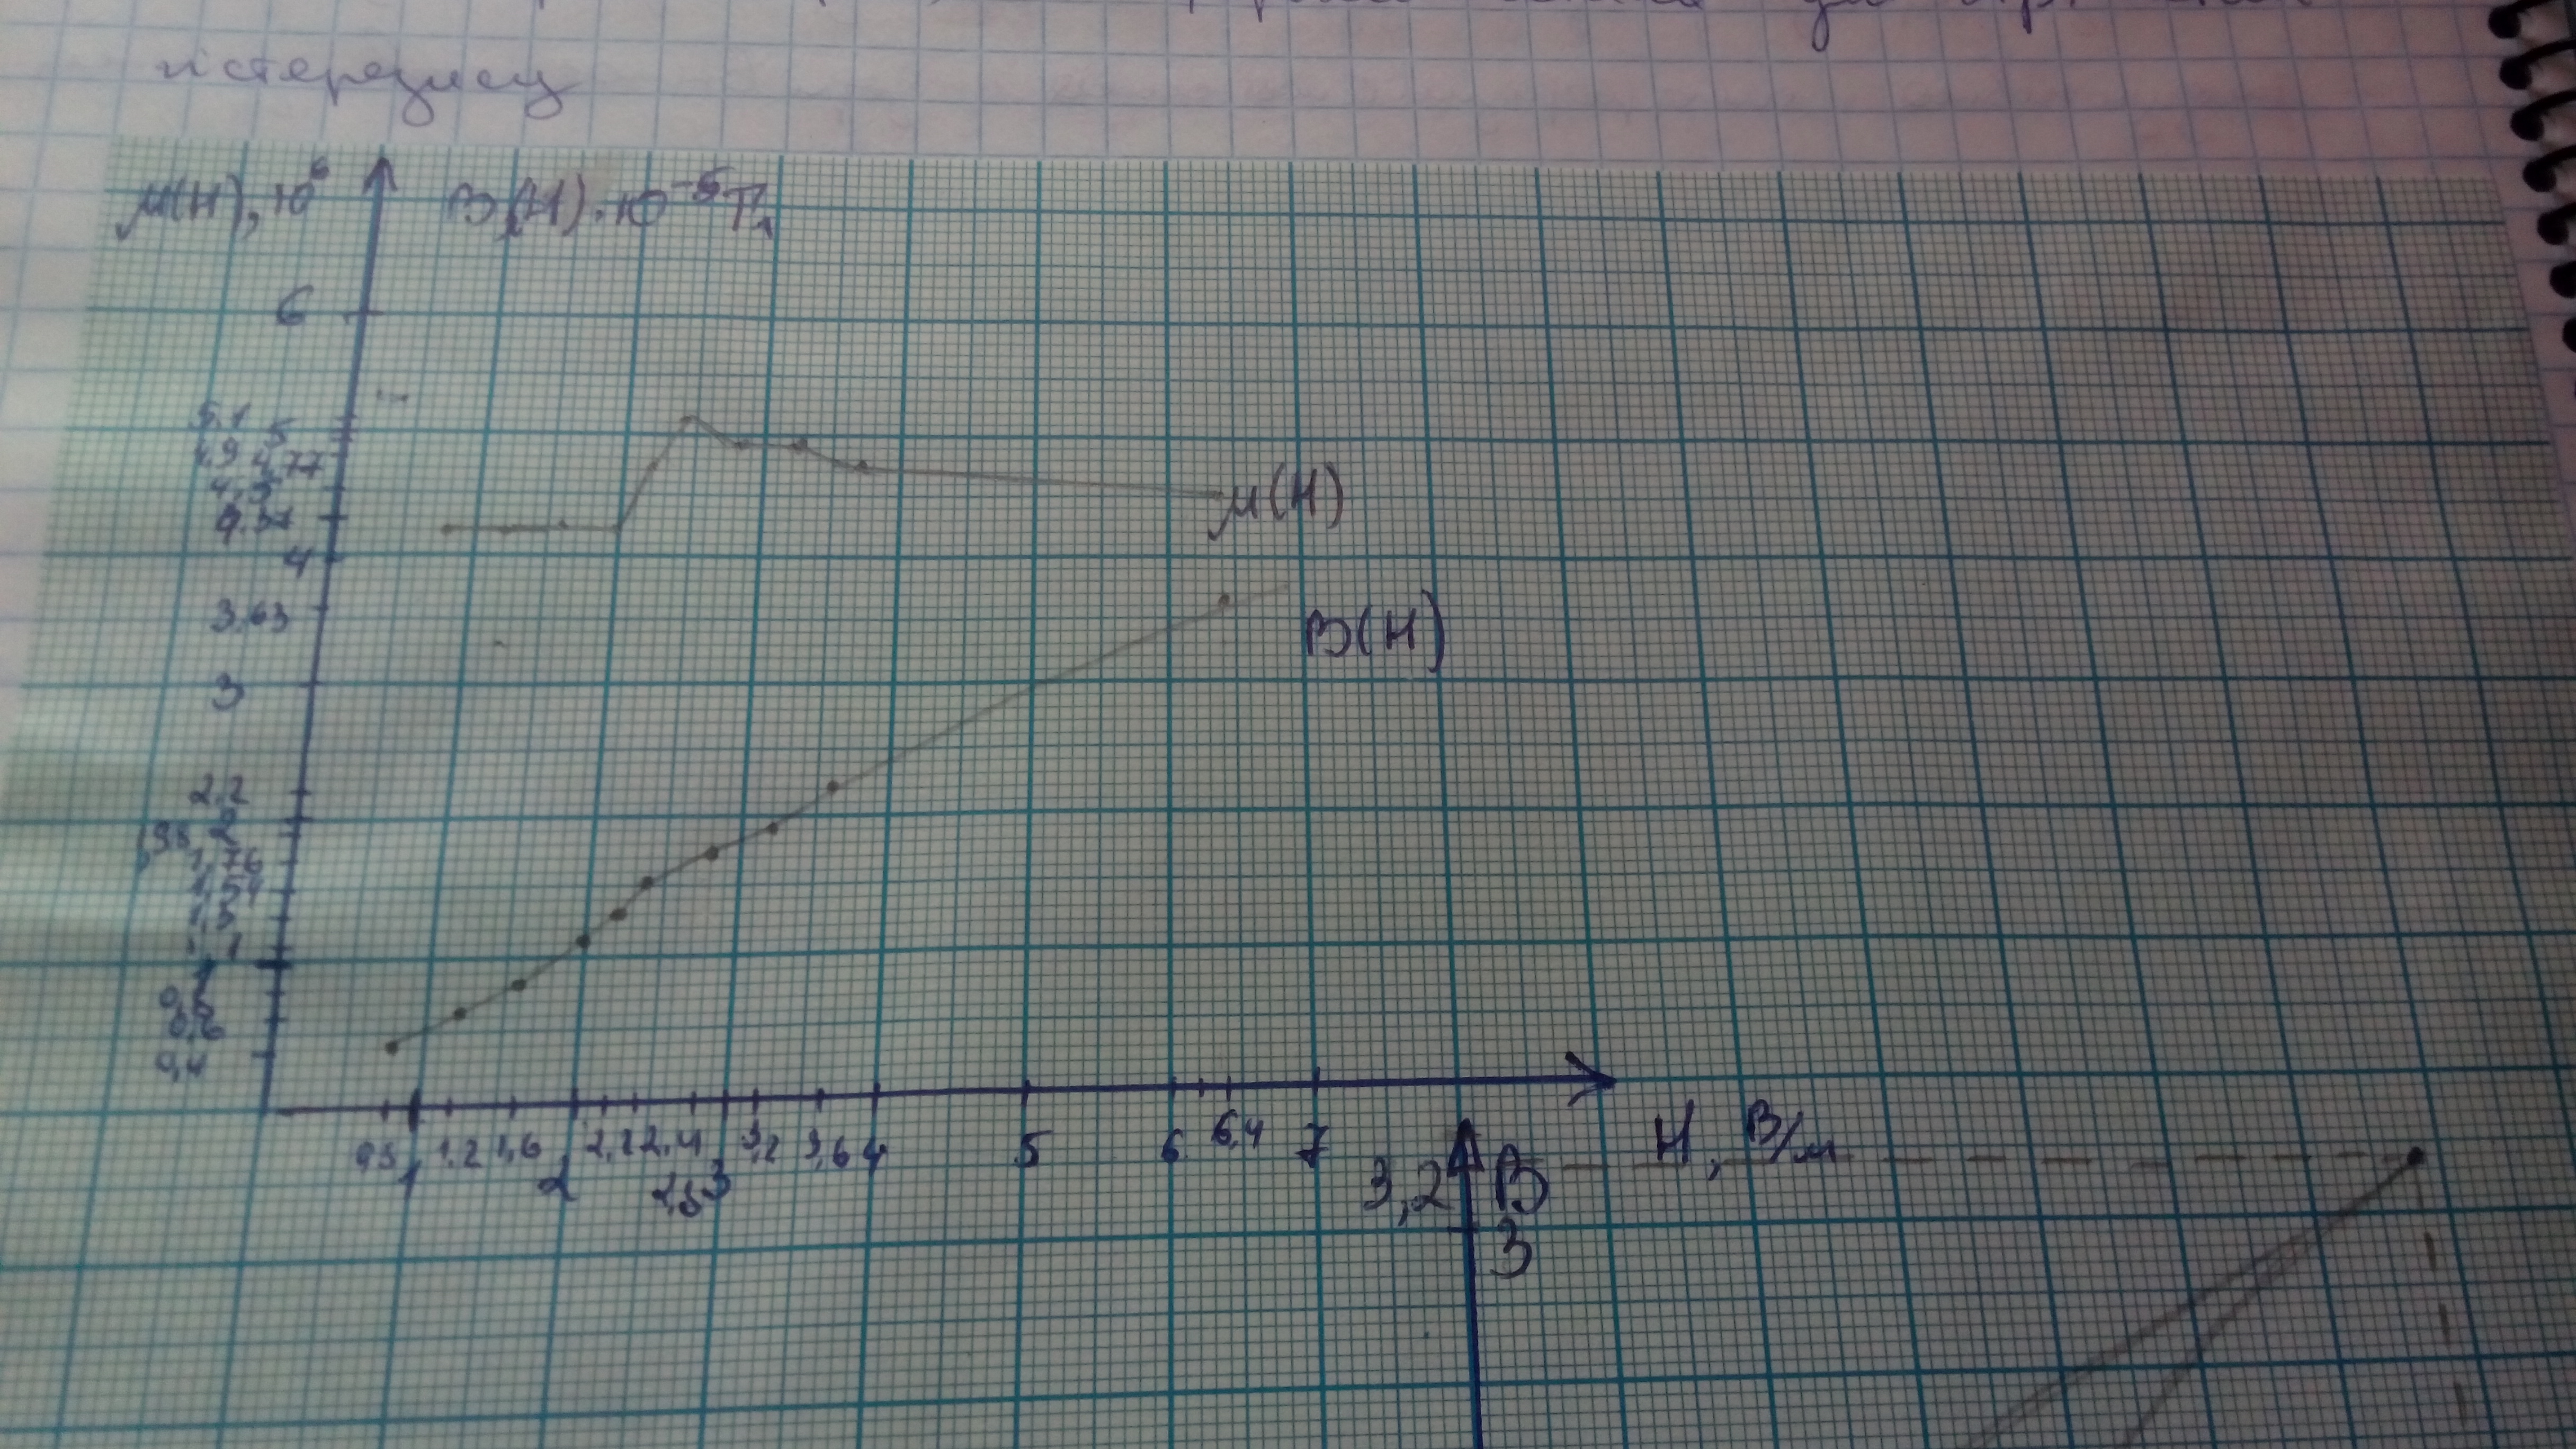 гістерезису
μ(H), 10⁶ B(H)·10⁻⁵Тл
6
5,1
5
4,9 4,77
4,5
4,34
4
μ(H)
3,63
B(H)
3
2,2
1,98 2
1,76
1,54
1,3
1,1
1
0,8
0,6
0,4
0,8 1 1,2 1,6 2 2,2 2,4 2,8 3 3,2 3,6 4 5 6 6,4 7 H, В/м
3,2 B
3